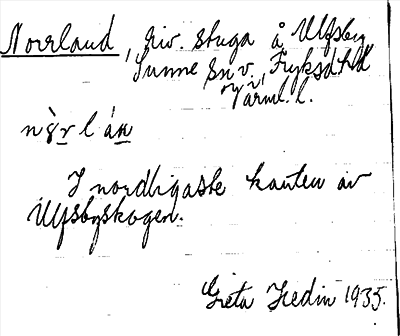 Norrland, riv. stuga å Ulfsby
Sunne sn v. Fryksd. hd
Värml. l.
I nordligaste kanten av
Ulfsbyskogen.
Greta Hedin 1935.